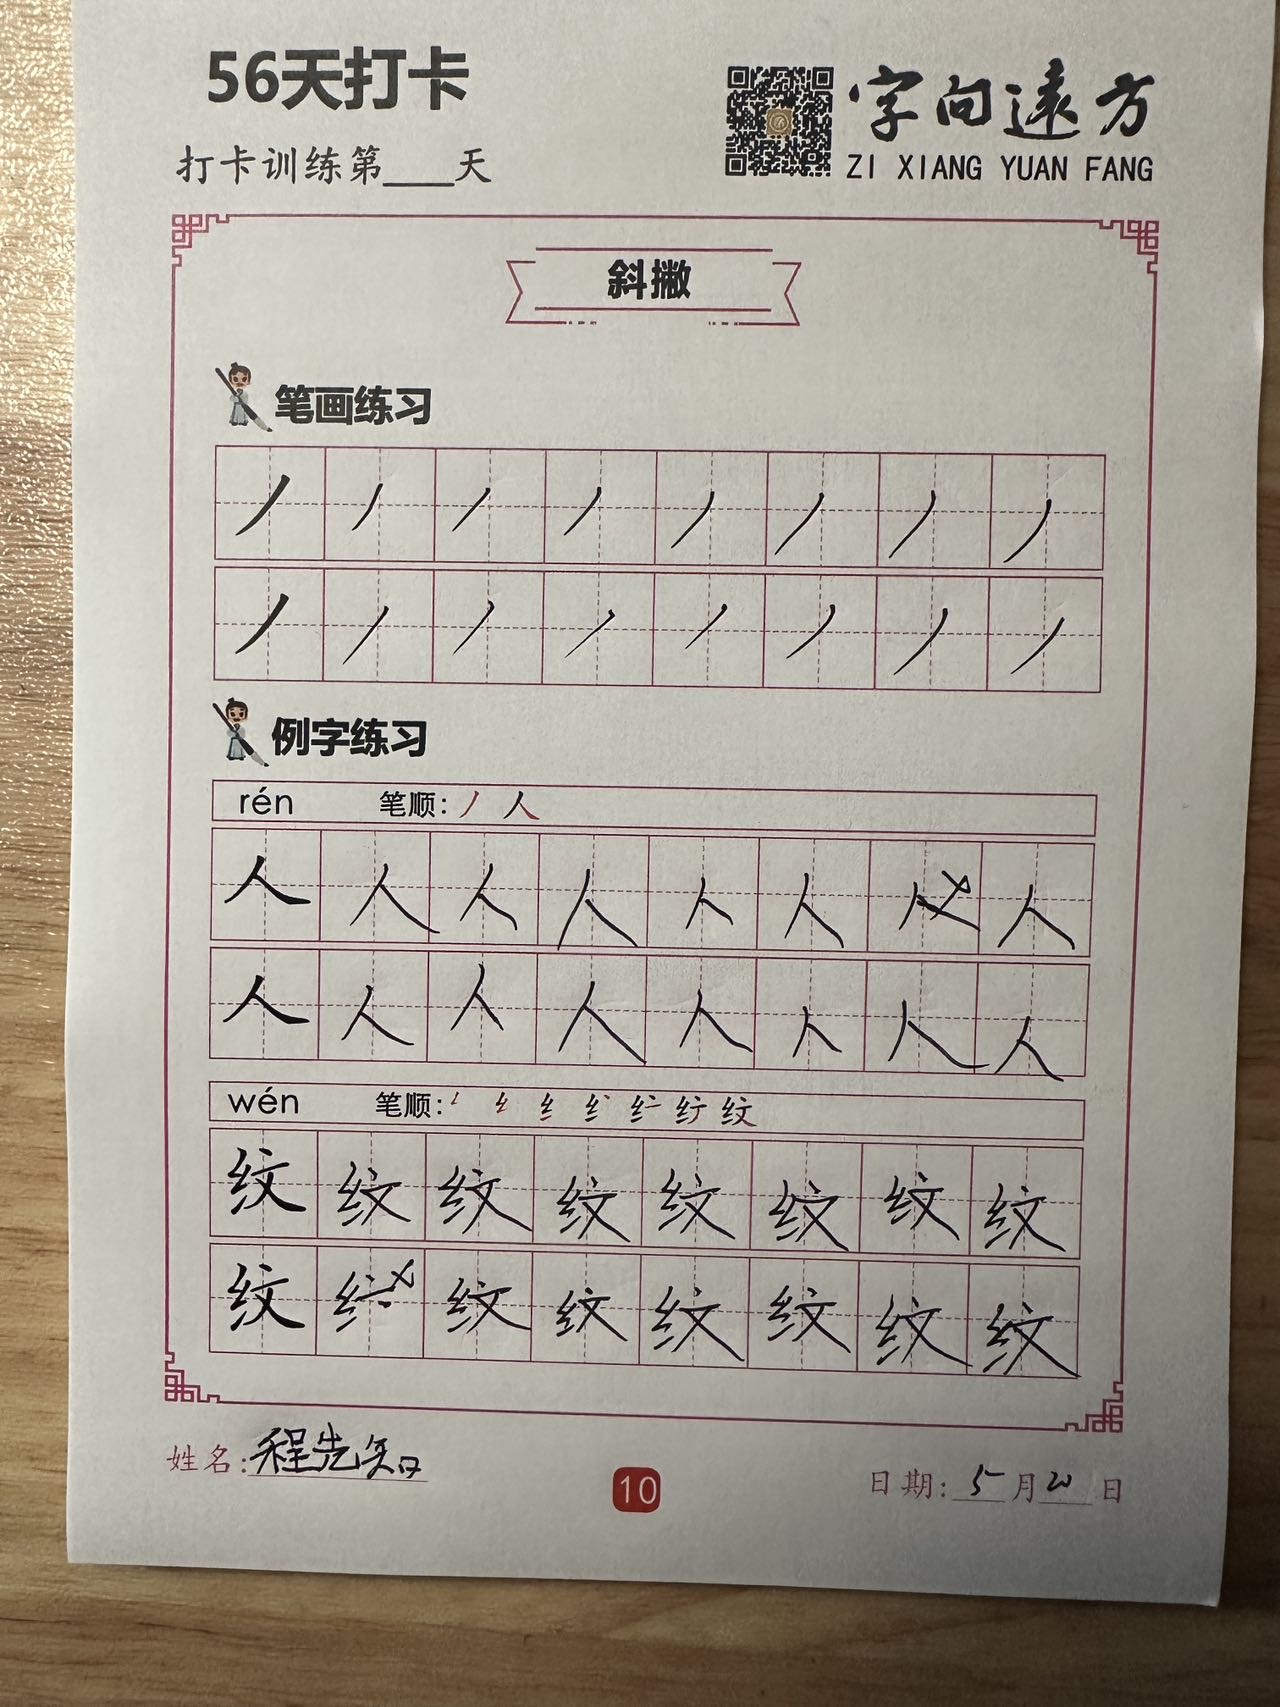 56天打卡
打卡训练第____天
字向远方
ZI XIANG YUAN FANG
斜撇
笔画练习
丿 丿 丿 丿 丿 丿 丿 丿
丿 丿 丿 丿 丿 丿 丿 丿
例字练习
rén 笔顺：丿 人
人 人 人 人 人 人 人
人 人 人 人 人 人 人 人
wén 笔顺： 纹
纹 纹 纹 纹 纹 纹 纹 纹
纹 纹 纹 纹 纹 纹 纹
姓名：程先知
10
日期：5月20日